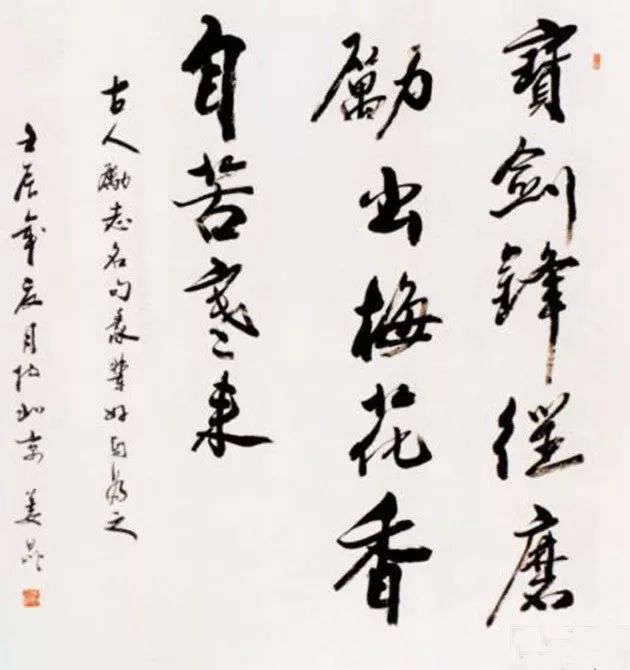 寶劍鋒從磨
勵出梅花香
自苦寒來
古人勵志名句我輩好自為之
壬辰年夏月於北京 姜昆